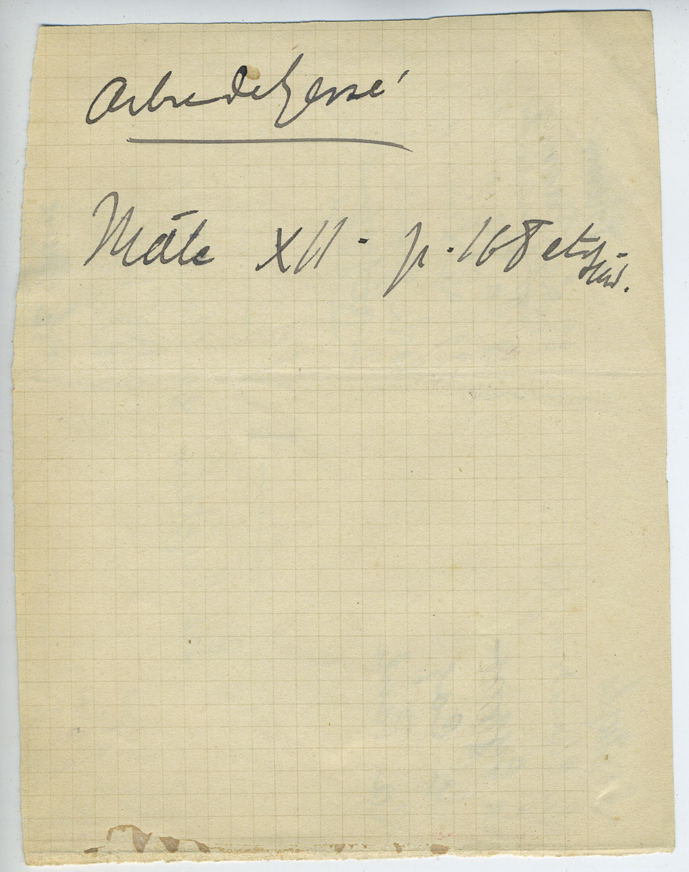 Arbre de Jessé
Mâle XII - p. 168 et suiv.